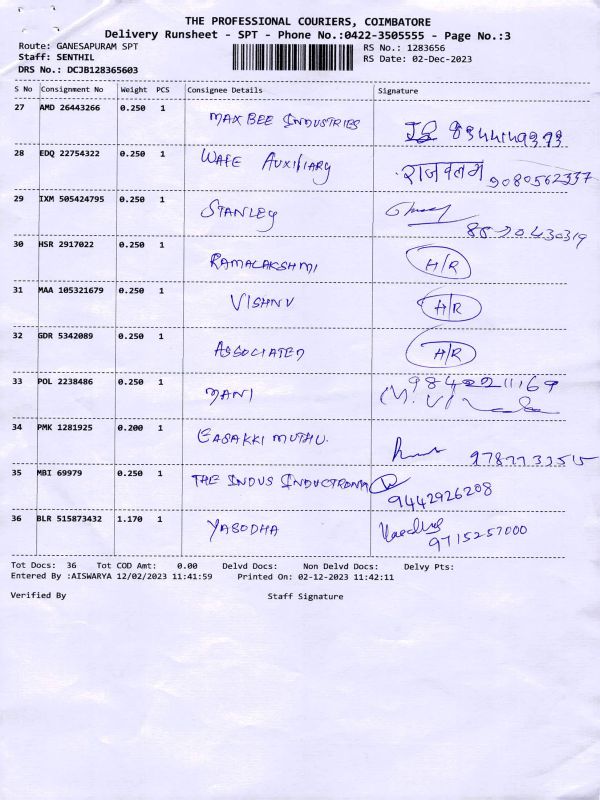 THE PROFESSIONAL COURIERS, COIMBATORE
Delivery Runsheet - SPT - Phone No.:0422-3505555 - Page No.:3
Route: GANESAPURAM SPT RS No.: 1283656
Staff: SENTHIL RS Date: 02-Dec-2023
DRS No.: DCJB128365603
S No Consignment No Weight PCS Consignee Details Signature
27 AMD 26443266 0.250 1 MAX BEE INDUSTRIES
28 EDQ 22754322 0.250 1 WAFE AUXILIARY 9080562337
29 IXM 505424795 0.250 1 STANLEY
30 HSR 2917022 0.250 1 RAMALAKSHMI H/R
31 MAA 105321679 0.250 1 VISHNU H/R
32 GDR 5342089 0.250 1 ASSOCIATED H/R
33 POL 2238486 0.250 1 MANI
34 PMK 1281925 0.200 1 EASAKKI MUTHU.
35 MBI 69979 0.250 1 THE INDUS 9442926208
36 BLR 515873432 1.170 1 YASODHA 9715257000
Tot Docs: 36 Tot COD Amt: 0.00 Delvd Docs: Non Delvd Docs: Delvy Pts:
Entered By :AISWARYA 12/02/2023 11:41:59 Printed On: 02-12-2023 11:42:11
Verified By Staff Signature